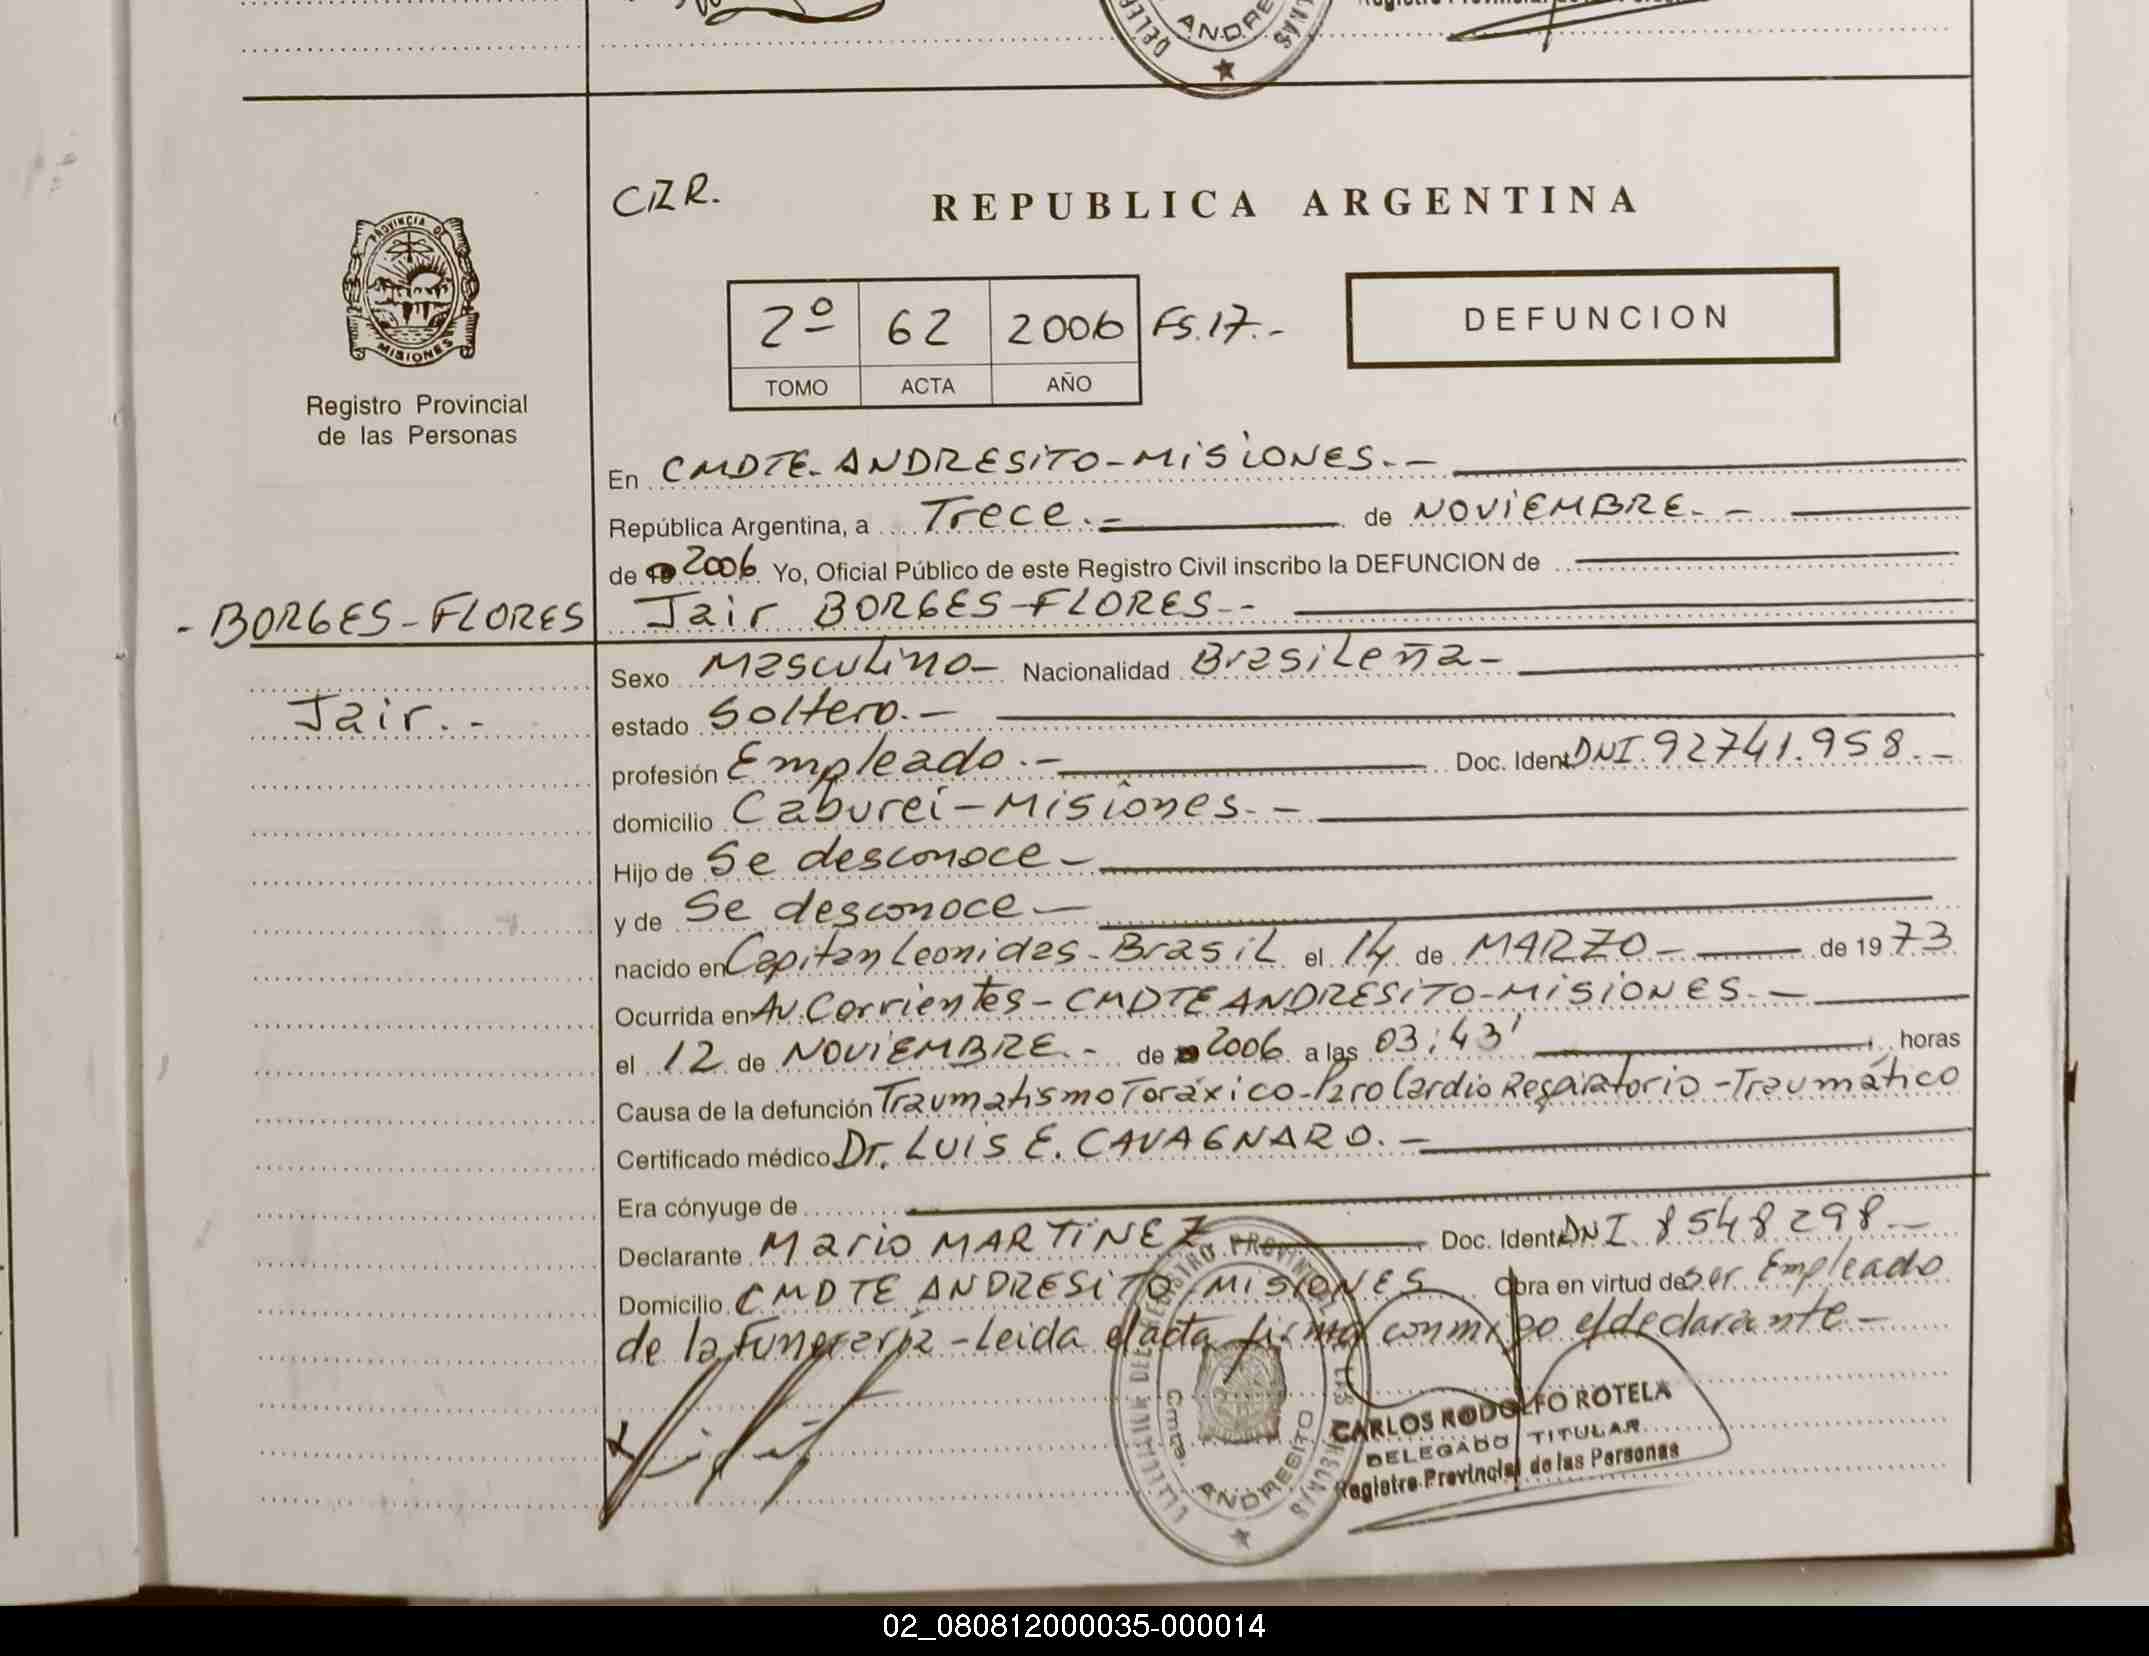 DELE
ANDRE
NAS
C.Z.R.
REPUBLICA ARGENTINA
PROVINCIA DE
MISIONES
Registro Provincial
de las Personas
2º 62 2006 Fs.17.-
TOMO ACTA AÑO
DEFUNCION
En CMDTE. ANDRESITO-MISIONES.-
República Argentina, a Trece.- de NOVIEMBRE.-
de 2006 Yo, Oficial Público de este Registro Civil inscribo la DEFUNCION de
-BORGES-FLORES
Jair BORGES-FLORES.-
Sexo Masculino- Nacionalidad Brasileña-
Jair.-
estado Soltero.-
profesión Empleado.- Doc. Ident DNI.92741.958.-
domicilio Caburei-Misiones.-
Hijo de Se desconoce-
y de Se desconoce-
nacido en Capitan Leonidas-Brasil el 14 de MARZO- de 1973
Ocurrida en Av. Corrientes-CMDTE ANDRESITO-MISIONES.-
el 12 de NOVIEMBRE.- de 2006 a las 03:43' horas
Causa de la defunción Traumatismo Toráxico-Paro Cardio Respiratorio-Traumático
Certificado médico Dr. LUIS E. CAVAGNARO.-
Era cónyuge de
Declarante Mario MARTINEZ Doc. Ident DNI 8548298.-
Domicilio CMDTE ANDRESITO-MISIONES Obra en virtud de ser Empleado
de la Funeraria-Leida el acta firma conmigo el declarante-
REGISTRO PROVINCIAL DE LAS PERSONAS
Cmte. ANDRESITO
CARLOS RODOLFO ROTELA
DELEGADO TITULAR
Registro Provincial de las Personas
02_080812000035-000014